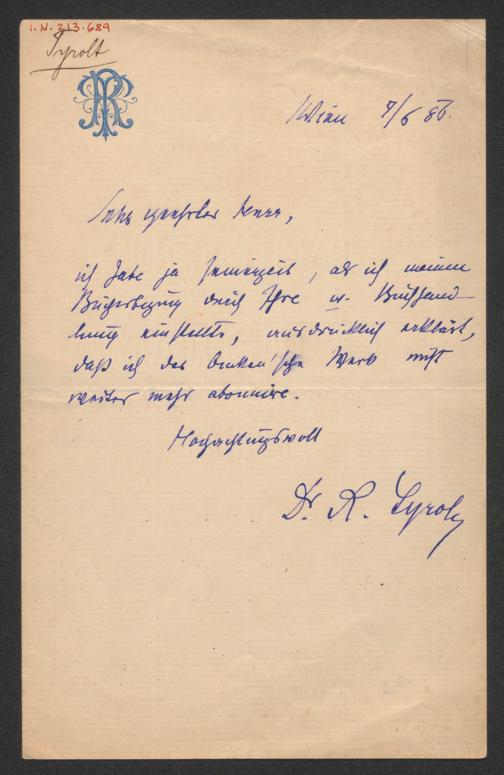 I.N. 213.689
Tyrolt
RT
Wien 7/6 86.
Sehr geehrter Herr,
ich habe ja seinerzeit, als ich meinen
Bücherbezug durch Ihre w. Buchhand-
lung einstellte, ausdrücklich erklärt,
daß ich das Onken'sche Werk nicht
weiter mehr abonnire.
Hochachtungsvoll
Dr. R. Tyrolt